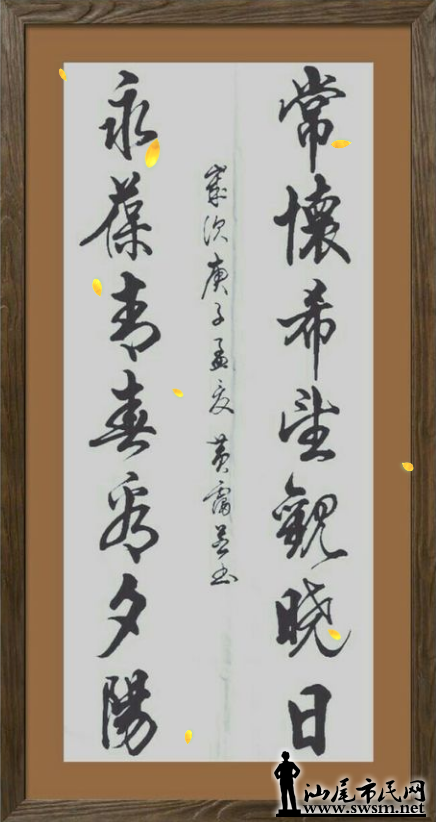 常懷希望觀晓日
永葆青春看夕陽
歲次庚子孟夏 黄书
汕尾市民网
www.swsm.net